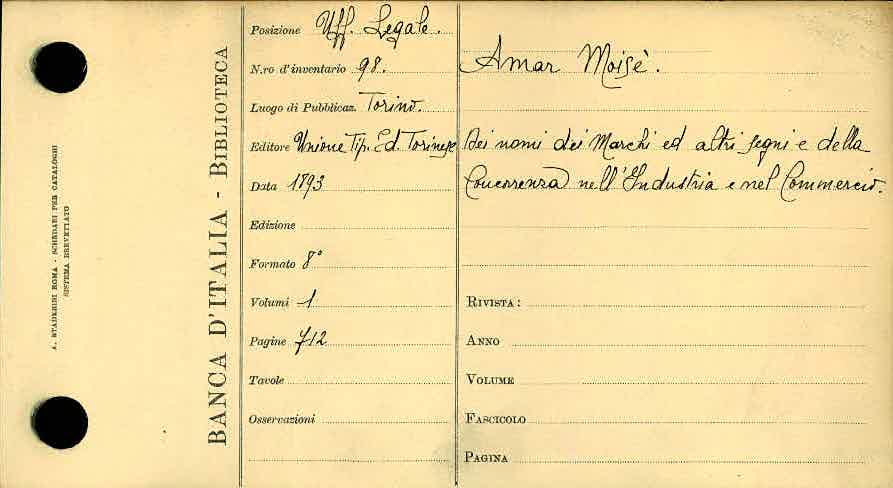 A. STADERINI ROMA - SCHEDARI PER CATALOGHI
SISTEMA BREVETTATO
BANCA D'ITALIA - BIBLIOTECA
Posizione Uff. Legale.
N.ro d'inventario 98.
Luogo di Pubblicaz. Torino.
Editore Unione Tip. Ed. Torinese
Data 1893
Edizione
Formato 8°
Volumi 1
Pagine 712
Tavole
Osservazioni
Amar Moisè.
Dei nomi dei Marchi ed altri segni e della
Concorrenza nell'Industria e nel Commercio.
RIVISTA:
ANNO
VOLUME
FASCICOLO
PAGINA